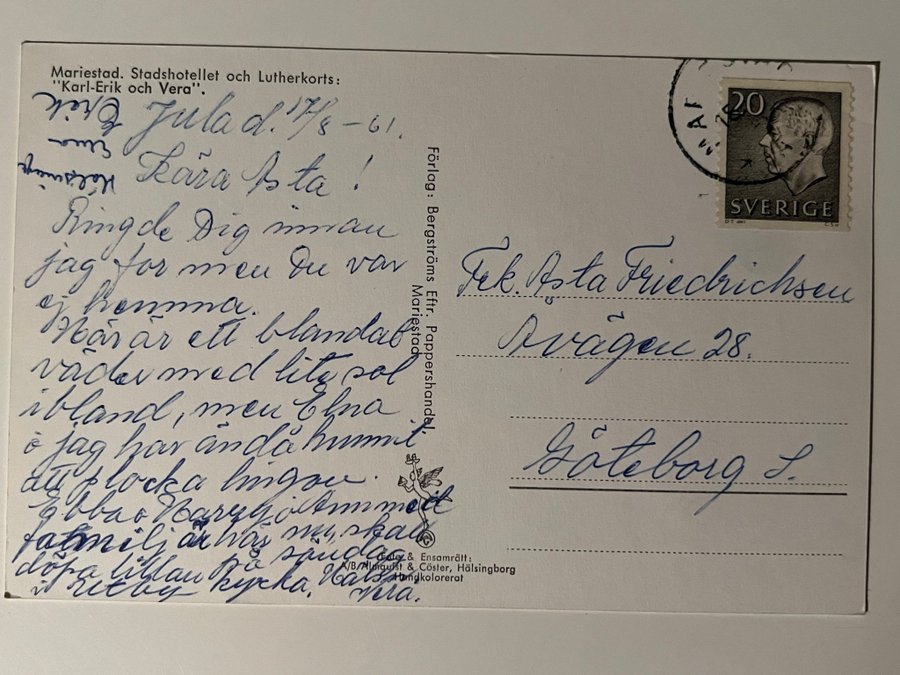 Mariestad. Stadshotellet och Lutherkorts:
"Karl-Erik och Vera".
Jula d. 17/8 – 61.
Kära Asta!
Ringde Dig innan
jag for men Du var
ej hemma.
Här är ett blandat
väder med lite sol
ibland, men Elna
o jag har ändå hunnit
att plocka lingon.
Ebba o Harry o Ammi med
familj är här nu, skall
döpa lillan på söndag
i kyrka. Hälsn.
Vera.
Hälsningar
Elna
Erik
Förlag: Bergströms Eftr. Pappershandel.
Mariestad.
Foto & Ensamrätt:
A/B Almquist & Cöster, Hälsingborg
Handkolorerat
MAR
20
SVERIGE
Frk. Asta Friedrichsen
Åvägen 28.
Göteborg S.